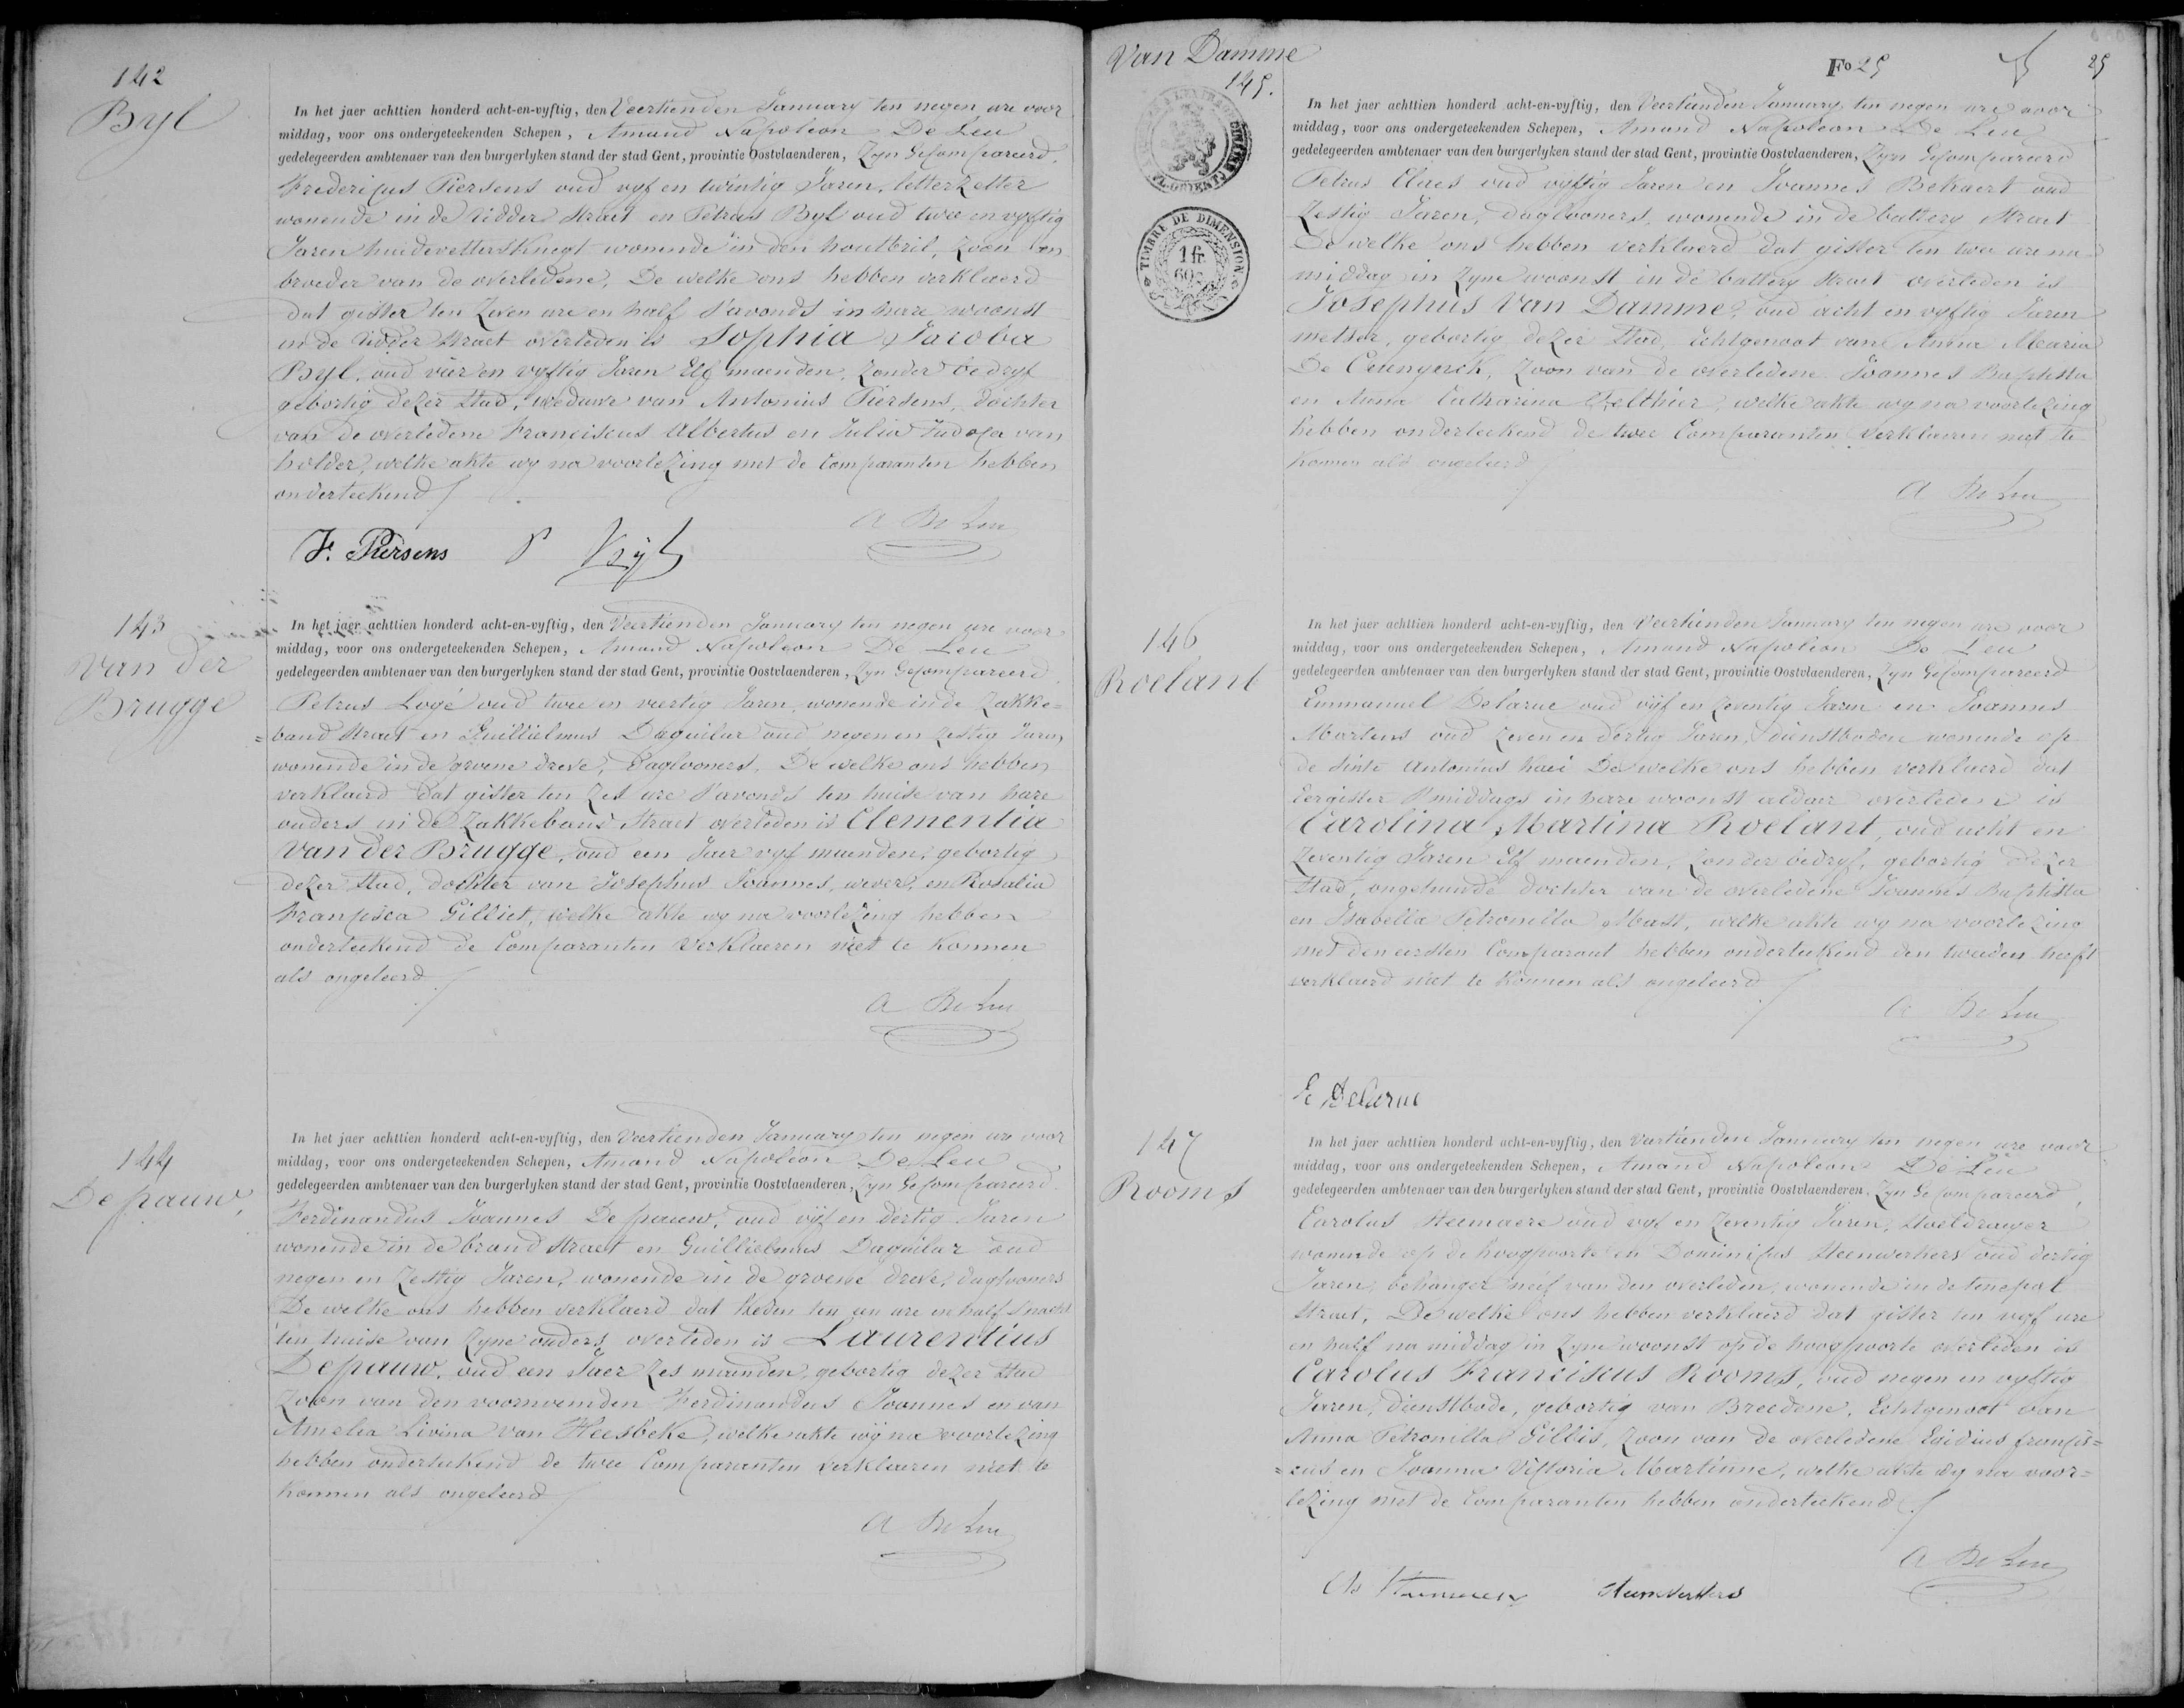 142
Byl
In het jaer achttien honderd acht-en-vyftig, den Veertienden January ten negen ure voor
middag, voor ons ondergeteekenden Schepen, Amand Napoleon De Leu
gedelegeerden ambtenaer van den burgerlyken stand der stad Gent, provintie Oostvlaenderen, Zyn Gecompareerd,
Fredericus Piersens oud vyf en twintig Jaren, letterzetter
wonende in de ridder straet en Petrus Byl oud twee en vyftig
Jaren huidevettersknegt wonende in den houtbril, zoon en
broeder van de overledene, De welke ons hebben verklaerd
dat gister ten zeven ure en half s'avonds in hare woonst
in de ridder straet overleden is Sophia Jacoba
Byl, oud vier en vyftig Jaren Elf maenden, zonder bedryf
gebortig dezer stad, weduwe van Antonius Piersens, dochter
van de overledene Franciscus Albertus en Julia Judoca van
holder, welke akte wy na voorlezing met de Comparanten hebben
onderteekend /
A De Leu
F. Piersens P Byl
143
Van der
Brugge
In het jaer achttien honderd acht-en-vyftig, den Veertienden January ten negen ure voor
middag, voor ons ondergeteekenden Schepen, Amand Napoleon De Leu
gedelegeerden ambtenaer van den burgerlyken stand der stad Gent, provintie Oostvlaenderen, Zyn Gecompareerd
Petrus Logé oud twee en veertig Jaren, wonende in de Zakke=
=band straet en Guillielmus Daguilar oud negen en zestig Jaren
wonende in de groene dreve, Daglooners. De welke ons hebben
verklaerd dat gister ten zes ure s'avonds ten huise van hare
ouders in de Zakkeband straet overleden is Clementia
Van der Brugge, oud een Jaer vyf maenden, gebortig
dezer stad, dochter van Josephus Joannes, wever, en Rosalia
Francisca Gilliet, welke akte wy na voorlezing hebben
onderteekend de Comparanten Verklaeren niet te konnen
als ongeleerd /
A De Leu
144
Depauw,
In het jaer achttien honderd acht-en-vyftig, den Veertienden January ten negen ure voor
middag, voor ons ondergeteekenden Schepen, Amand Napoléon De Leu
gedelegeerden ambtenaer van den burgerlyken stand der stad Gent, provintie Oostvlaenderen, Zyn Gecompareerd
Ferdinandus Joannes De pauw, oud vyf en dertig Jaren
wonende in de brand straet en Guillielmus Daguilar oud
negen en zestig Jaren, wonende in de groene dreve, daglooners
De welke ons hebben verklaerd dat heden ten een ure en half s'nacht
ten huise van zyne ouders overleden is Laurentius
Depauw, oud een Jaer zes maenden, gebortig dezer stad
zoon van den voornoemden Ferdinandus Joannes en van
Amelia Livina van Heesbeke, welke akte wy na voorlezing
hebben onderteekend de twee Comparanten verklaeren niet te
konnen als ongeleerd /
A De Leu
Van Damme
145.
Fo 25
25
TIMBRE DE DIMENSION.
1 fr
60 c
In het jaer achttien honderd acht-en-vyftig, den Veertienden January ten negen ure voor
middag, voor ons ondergeteekenden Schepen, Amand Napoleon De Leu
gedelegeerden ambtenaer van den burgerlyken stand der stad Gent, provintie Oostvlaenderen, Zyn Gecompareerd
Petrus Claes oud vyftig Jaren en Joannes Bekaert oud
Zestig Jaren, daglooners, wonende in de battery straet
De welke ons hebben verklaerd dat gister ten twee ure na
middag in zyne woonst in de battery straet overleden is
Josephus Van Damme, oud acht en vyftig Jaren
metser, gebortig dezer stad, Echtgenoot van Anna Maria
De Ceunynck, zoon van de overledene Joannes Baptista
en Anna Catharina Felthier, welke akte wy na voorlezing
hebben onderteekend de twee Comparanten Verklaeren niet te
konnen als ongeleerd /
A De Leu
146
Roelant
In het jaer achttien honderd acht-en-vyftig, den Veertienden January ten negen ure voor
middag, voor ons ondergeteekenden Schepen, Amand Napoleon De Leu
gedelegeerden ambtenaer van den burgerlyken stand der stad Gent, provintie Oostvlaenderen, Zyn Gecompareerd
Emmanuel Delarue oud vyf en zeventig Jaren en Joannes
Martens oud zeven en dertig Jaren, dienstboden wonende op
de sinte Antonius kaei De welke ons hebben verklaerd dat
Eergister s'middags in hare woonst aldaer overleden is
Carolina Martina Roelant, oud acht en
zeventig Jaren Elf maenden, zonder bedryf, gebortig dezer
stad, ongehuwde dochter van de overledene Joannes Baptista
en Isabella Petronilla Mast, welke akte wy na voorlezing
met den eersten Comparant hebben onderteekend den tweeden heeft
verklaerd niet te konnen als ongeleerd /
A De Leu
E Delarue
147
Rooms
In het jaer achttien honderd acht-en-vyftig, den Veertienden January ten negen ure voor
middag, voor ons ondergeteekenden Schepen, Amand Napoleon De Leu
gedelegeerden ambtenaer van den burgerlyken stand der stad Gent, provintie Oostvlaenderen, Zyn Gecompareerd,
Carolus Heemaere oud vyf en zeventig Jaren, stoeldraeyer
wonende op de hoogpoorte en Dominicus Steenwerkers oud dertig
Jaren, behanger neef van den overleden, wonende in de tenepot
straet, De welke ons hebben verklaerd dat gister ten vyf ure
en half na middag in zyne woonst op de hoogpoorte overleden is
Carolus Franciscus Rooms, oud negen en vyftig
Jaren, dienstbode, gebortig van Breedene, Echtgenoot van
Anna Petronilla Gillis, zoon van de overledene Egidius francis=
=cus en Joanna Victoria Martinne, welke akte wy na voor=
lezing met de Comparanten hebben onderteekend /
A De Leu
Steenwerkers